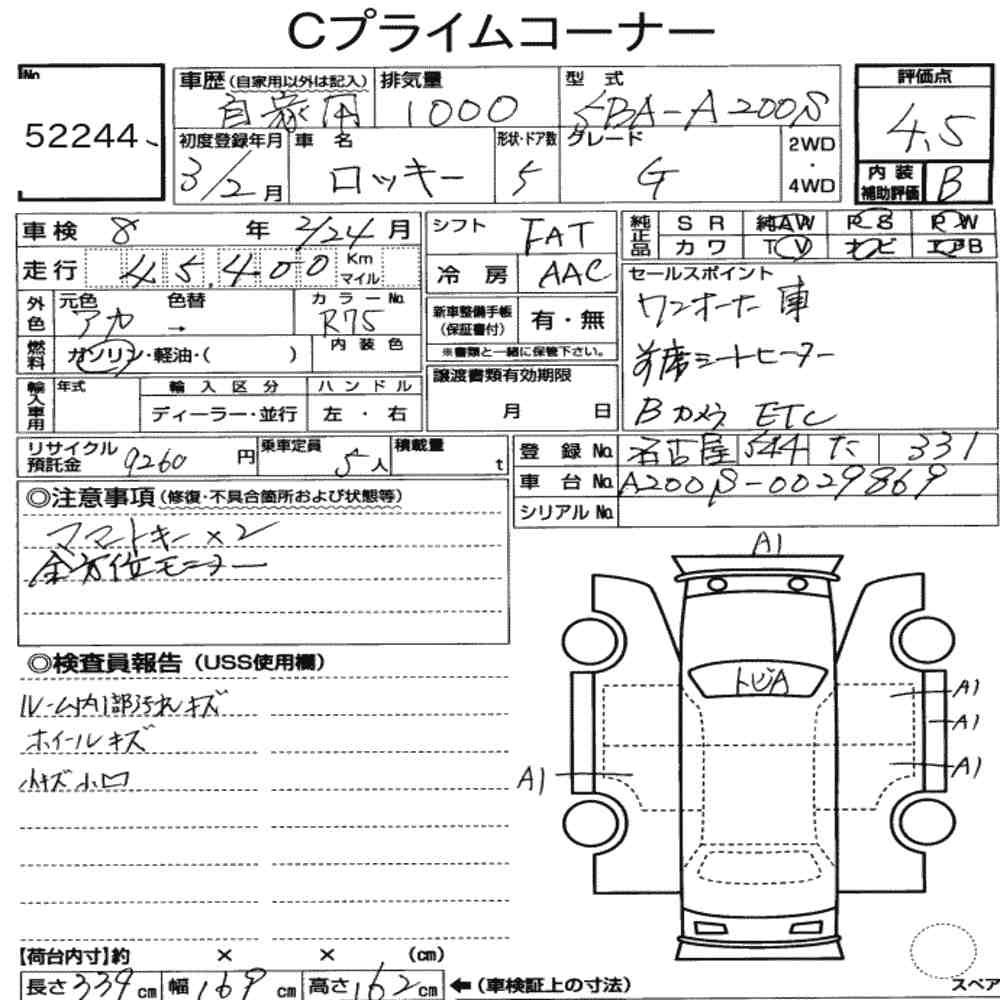 Cプライムコーナー
No
52244
車歴 (自家用以外は記入) 自家用
排気量 1000
型式 5BA-A200S
評価点 4.5
初度登録年月 3/2月
車名 ロッキー
形状・ドア数 5
グレード G
2WD・4WD
内装補助評価 B
車検 8年 2/24月
走行 45,400 Km マイル
外色 元色 アカ 色替 → カラーNo. R75
燃料 ガソリン・軽油・( ) 内装色
輸入車用 年式 輸入区分 ディーラー・並行 ハンドル 左・右
シフト FAT
冷房 AAC
新車整備手帳(保証書付) 有・無
※書類と一緒に保管下さい。
譲渡書類有効期限 月 日
純正品 SR 純AW R S P W
カワ TV ナビ エアB
セールスポイント
ワンオーナー車
前席シートヒーター
Bカメラ ETC
リサイクル預託金 9260円
乗車定員 5人
積載量 t
登録No. 名古屋 544 た 331
車台No. A200S-0029869
シリアルNo.
◎注意事項 (修復・不具合箇所および状態等)
スマートキー×2
全方位モニター
◎検査員報告 (USS使用欄)
ルーム内1部汚れキズ
ホイールキズ
小キズ小凹
A1
トビA
A1
A1
A1
A1
スペア
【荷台内寸】約 × × (cm)
長さ 339cm 幅 169cm 高さ 162cm ←(車検証上の寸法)